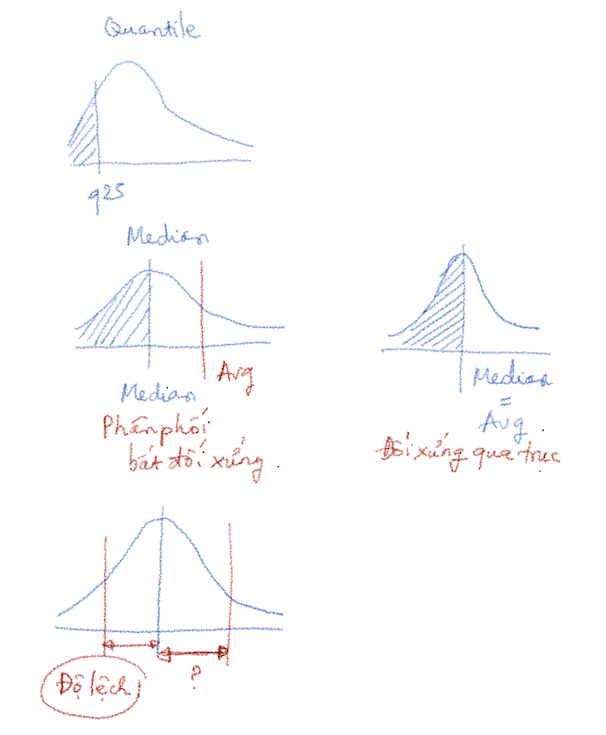 Quantile
q25
Median
Avg
Median
Phân phối
bất đối xứng.
Median
=
Avg.
Đối xứng qua trục
?
Độ lệch